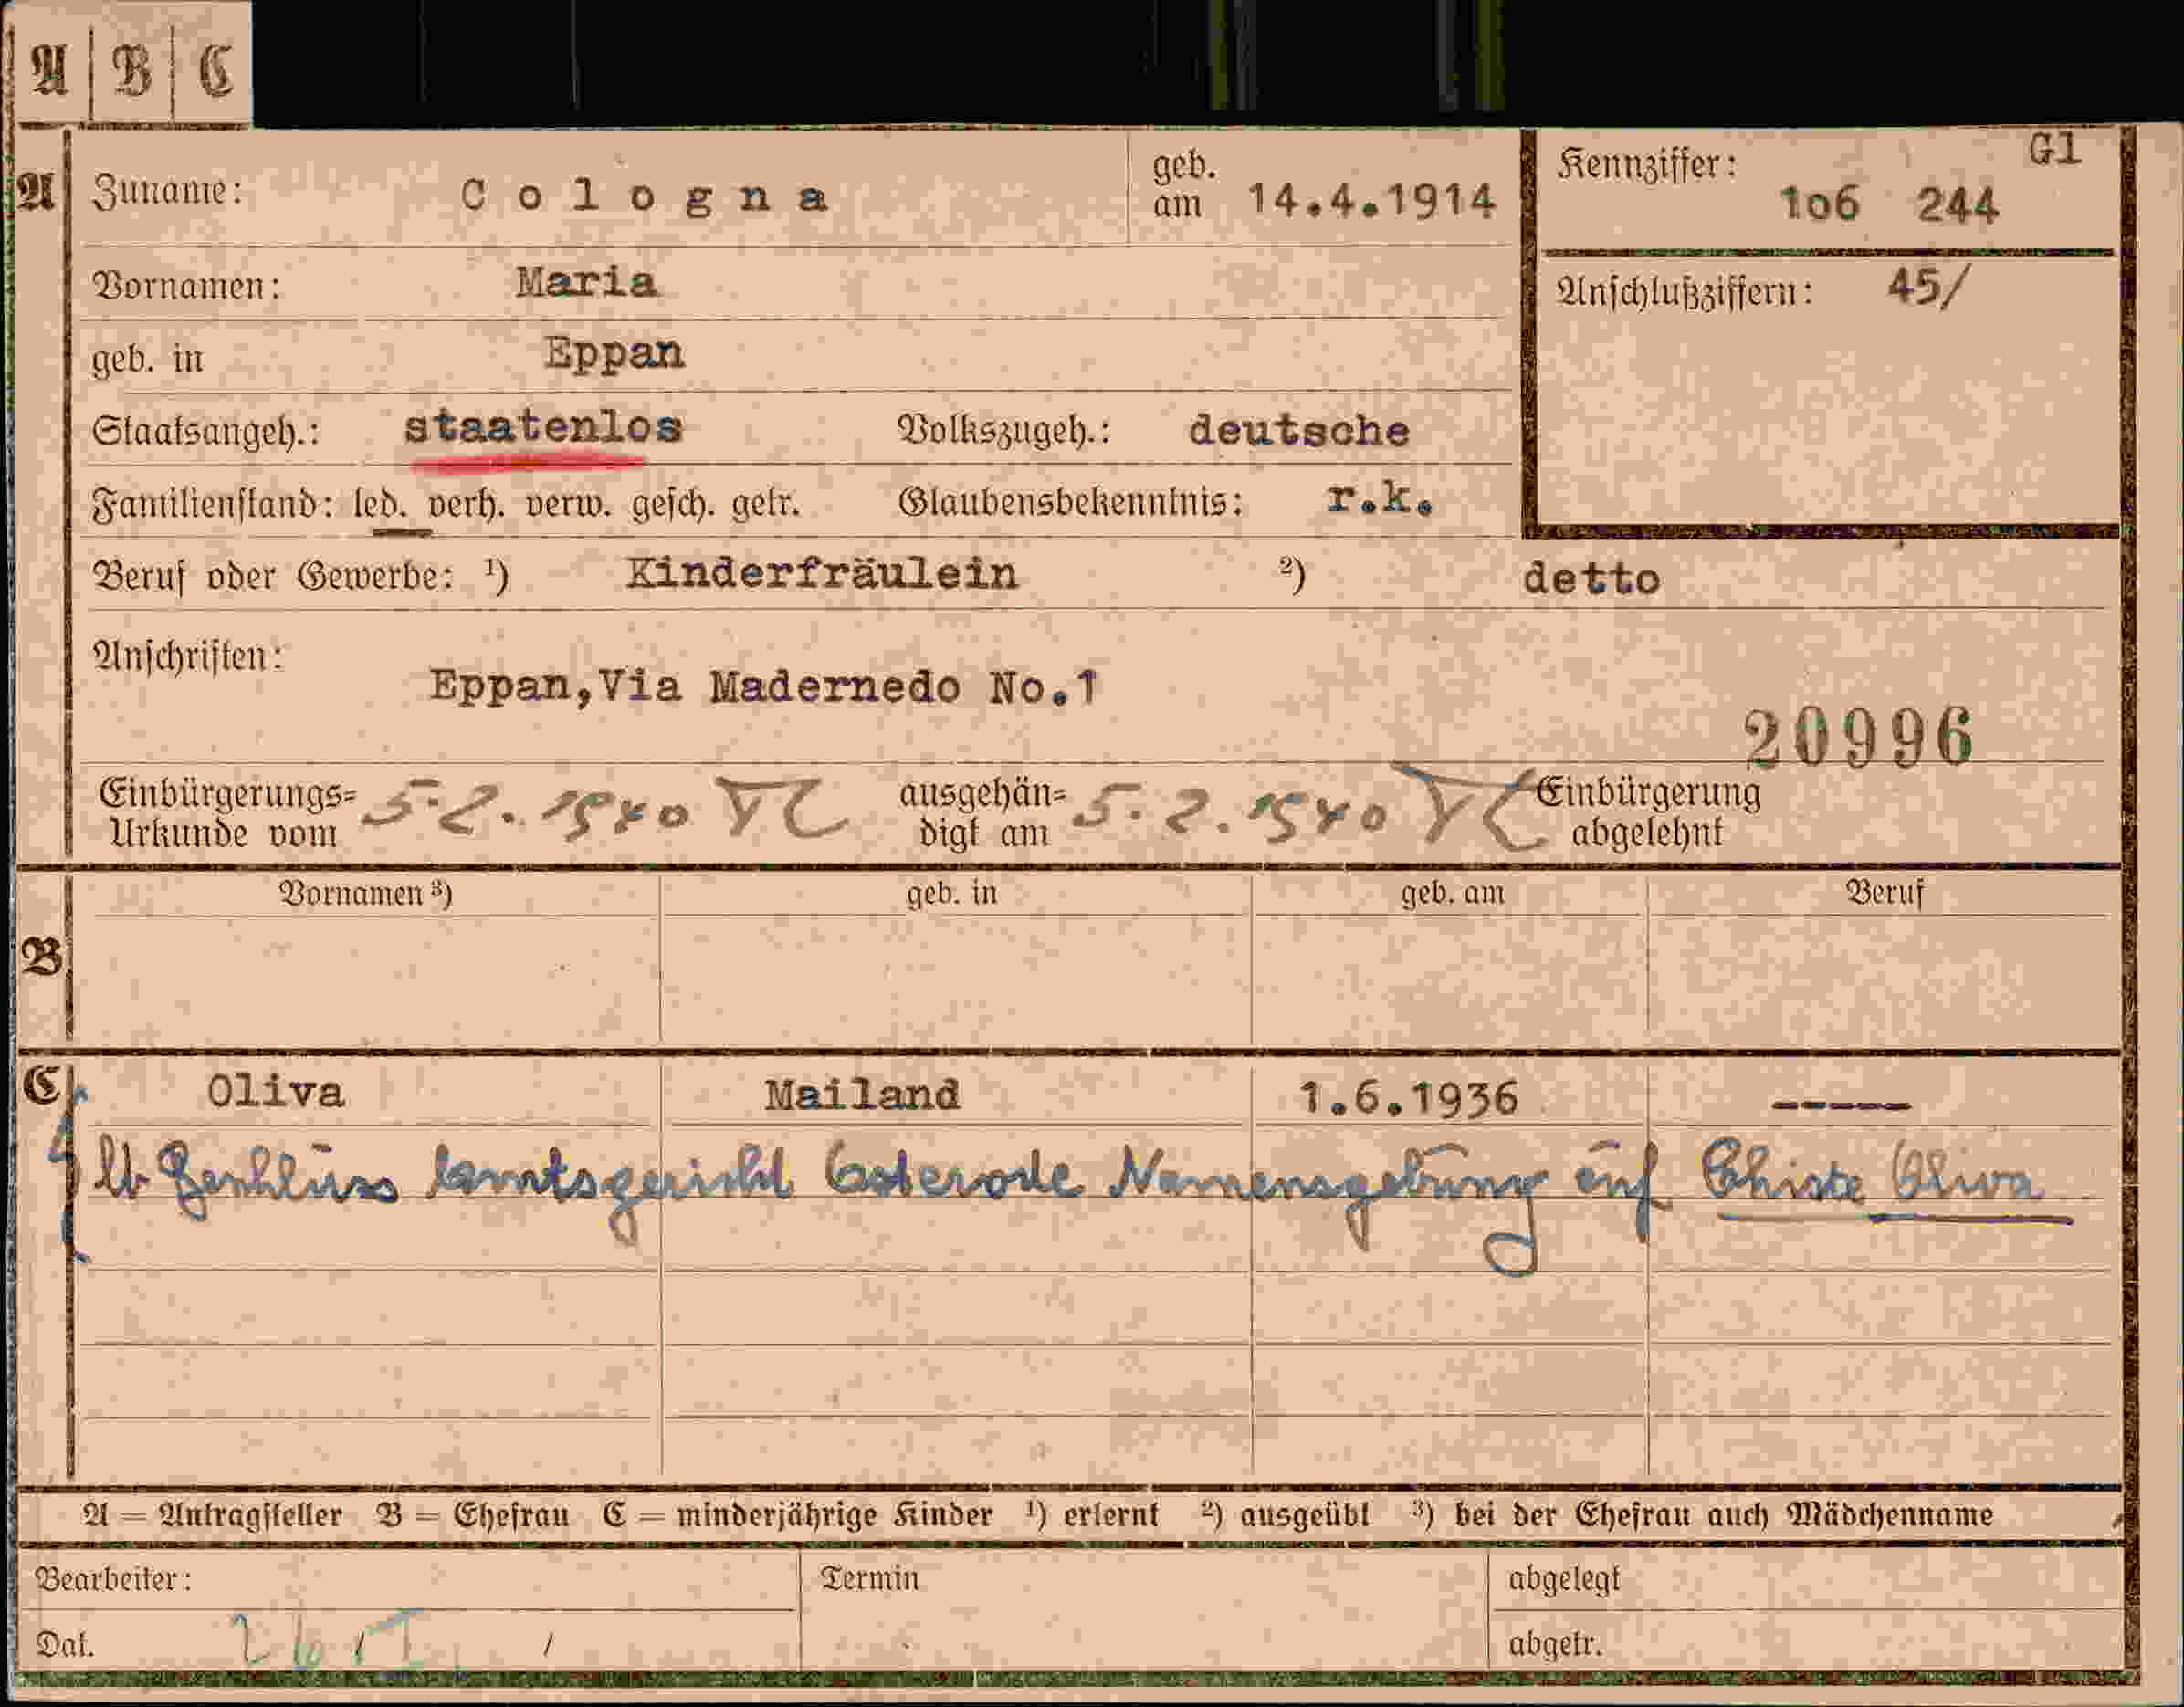 A | B | C
A Zuname: Cologna geb. am 14.4.1914 Kennziffer: 106 244 Gl
Vornamen: Maria Anschlußziffern: 45/
geb. in Eppan
Staatsangeh.: staatenlos Volkszugeh.: deutsche
Familienstand: led. verh. verw. gesch. getr. Glaubensbekenntnis: r.k.
Beruf oder Gewerbe: ¹) Kinderfräulein ²) detto
Anschriften:
Eppan,Via Madernedo No.1
20996
Einbürgerungs=
Urkunde vom 5.2.1940
ausgehän=
digt am 5.2.1940
Einbürgerung
abgelehnt
Vornamen ³) geb. in geb. am Beruf
B
C Oliva Mailand 1.6.1936 -----
lt Beschluss Amtsgericht Osterode Namensgebung auf Christe Oliva
A = Antragsteller B = Ehefrau C = minderjährige Kinder ¹) erlernt ²) ausgeübt ³) bei der Ehefrau auch Mädchenname
Bearbeiter: Termin abgelegt
Dat. 26/I. / abgetr.